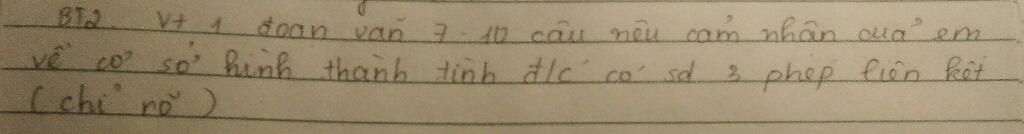 BT2. Vt 1 đoạn văn 7-10 câu nêu cảm nhận của em
về cơ sở hình thành tình đ/c có sd 3 phép liên kết
(chỉ rõ)